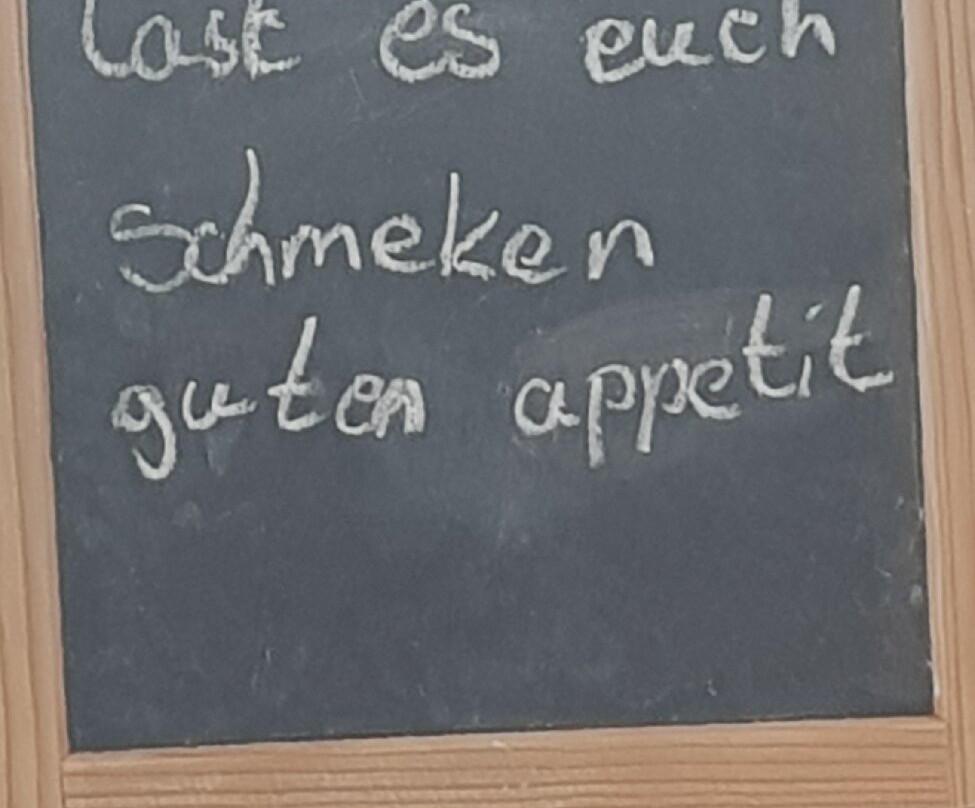 Last es euch
schmeken
guten appetit